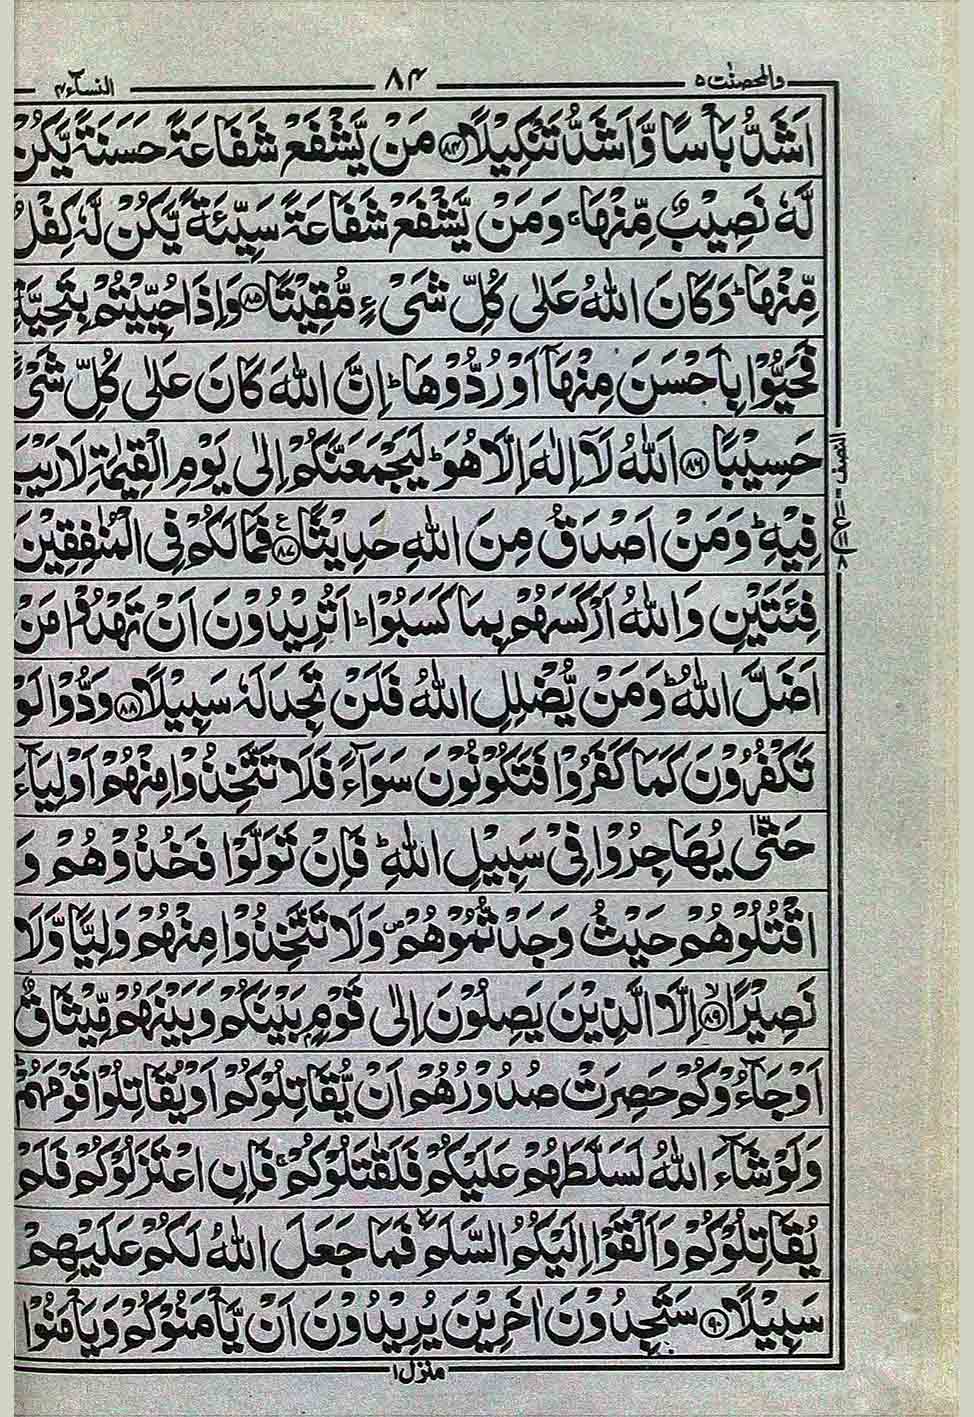 والمحصنٰت ۵ ۸۴ النساۤء ۴
اَشَدُّ بَاْسًا وَّاَشَدُّ تَنْكِيْلًا ﴿۸۴﴾ مَنْ يَّشْفَعْ شَفَاعَةً حَسَنَةً يَّكُنْ
لَّهٗ نَصِيْبٌ مِّنْهَا ۚ وَمَنْ يَّشْفَعْ شَفَاعَةً سَيِّئَةً يَّكُنْ لَّهٗ كِفْلٌ
مِّنْهَا ؕ وَكَانَ اللّٰهُ عَلٰى كُلِّ شَىْءٍ مُّقِيْتًا ﴿۸۵﴾ وَاِذَا حُيِّيْتُمْ بِتَحِيَّةٍ
فَحَيُّوْا بِاَحْسَنَ مِنْهَاۤ اَوْ رُدُّوْهَا ؕ اِنَّ اللّٰهَ كَانَ عَلٰى كُلِّ شَىْءٍ
حَسِيْبًا ﴿۸۶﴾ اَللّٰهُ لَاۤ اِلٰهَ اِلَّا هُوَ ؕ لَيَجْمَعَنَّكُمْ اِلٰى يَوْمِ الْقِيٰمَةِ لَا رَيْبَ
فِيْهِ ؕ وَمَنْ اَصْدَقُ مِنَ اللّٰهِ حَدِيْثًا ﴿۸۷﴾ ع فَمَا لَكُمْ فِى الْمُنٰفِقِيْنَ
فِئَتَيْنِ وَاللّٰهُ اَرْكَسَهُمْ بِمَا كَسَبُوْا ؕ اَتُرِيْدُوْنَ اَنْ تَهْدُوْا مَنْ
اَضَلَّ اللّٰهُ ؕ وَمَنْ يُّضْلِلِ اللّٰهُ فَلَنْ تَجِدَ لَهٗ سَبِيْلًا ﴿۸۸﴾ وَدُّوْا لَوْ
تَكْفُرُوْنَ كَمَا كَفَرُوْا فَتَكُوْنُوْنَ سَوَآءً فَلَا تَتَّخِذُوْا مِنْهُمْ اَوْلِيَآءَ
حَتّٰى يُهَاجِرُوْا فِىْ سَبِيْلِ اللّٰهِ ؕ فَاِنْ تَوَلَّوْا فَخُذُوْهُمْ وَ
اقْتُلُوْهُمْ حَيْثُ وَجَدْتُّمُوْهُمْ ۖ وَلَا تَتَّخِذُوْا مِنْهُمْ وَلِيًّا وَّلَا
نَصِيْرًا ۙ﴿۸۹﴾ اِلَّا الَّذِيْنَ يَصِلُوْنَ اِلٰى قَوْمٍۭ بَيْنَكُمْ وَبَيْنَهُمْ مِّيْثَاقٌ
اَوْ جَآءُوْكُمْ حَصِرَتْ صُدُوْرُهُمْ اَنْ يُّقَاتِلُوْكُمْ اَوْ يُقَاتِلُوْا قَوْمَهُمْ ؕ
وَلَوْ شَآءَ اللّٰهُ لَسَلَّطَهُمْ عَلَيْكُمْ فَلَقٰتَلُوْكُمْ ۚ فَاِنِ اعْتَزَلُوْكُمْ فَلَمْ
يُقَاتِلُوْكُمْ وَاَلْقَوْا اِلَيْكُمُ السَّلَمَ ۙ فَمَا جَعَلَ اللّٰهُ لَكُمْ عَلَيْهِمْ
سَبِيْلًا ﴿۹۰﴾ سَتَجِدُوْنَ اٰخَرِيْنَ يُرِيْدُوْنَ اَنْ يَّاْمَنُوْكُمْ وَيَاْمَنُوْا
النصف
ع ۱۱ ۱۱ ۸
منزل ۱